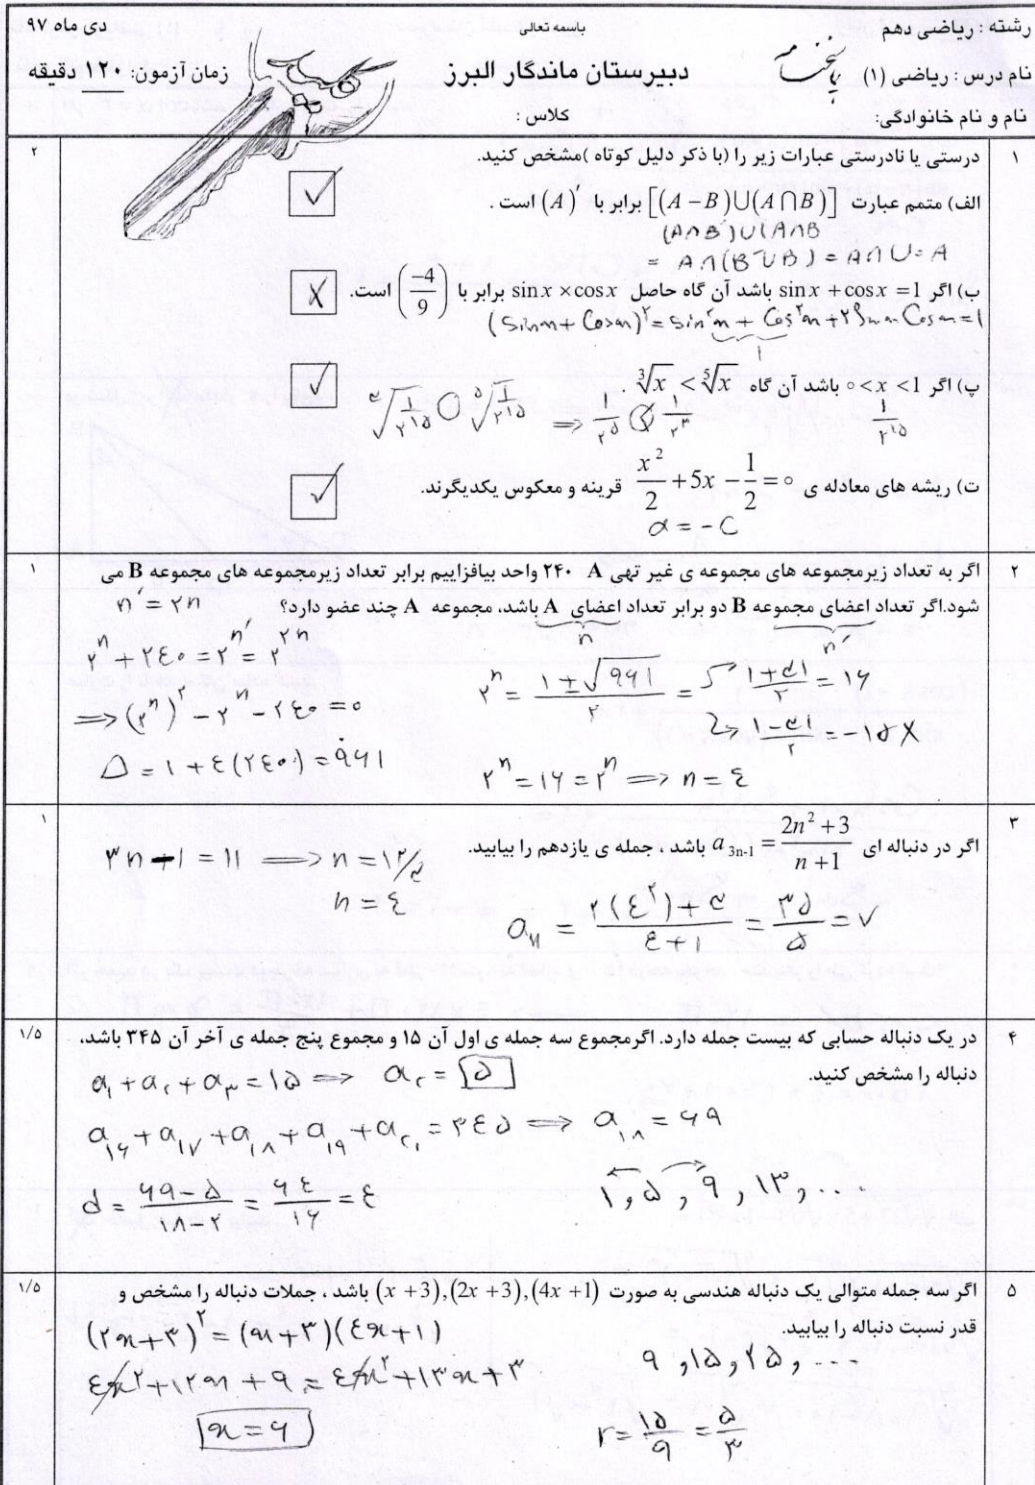 رشته : ریاضی دهم
باسمه تعالی
دی ماه ۹۷
نام درس : ریاضی (۱)
پاسخنامه
دبیرستان ماندگار البرز
زمان آزمون: ۱۲۰ دقیقه
نام و نام خانوادگی:
کلاس :
۱
درستی یا نادرستی عبارات زیر را (با ذکر دلیل کوتاه )مشخص کنید.
۲
الف) متمم عبارت [(A − B)∪(A∩B)] برابر با (A)′ است .
✓
(A∩B′)∪(A∩B
= A∩(B′∪B) = A∩U = A
ب) اگر sin x + cos x = 1 باشد آن گاه حاصل sin x × cos x برابر با (−4/9) است.
X
(Sinx + Cosx)^۲ = Sin^۲x + Cos^۲x + ۲Sinx Cosx = ۱
۱
پ) اگر ۰ < x < 1 باشد آن گاه ∛x < ⁵√x .
✓
۳√(۱/۲^۱۵) ○ ۵√(۱/۲^۱۵) ⇒ ۱/۲^۵ < ۱/۲^۳
۱/۲^۱۵
ت) ریشه های معادله ی x²/2 + 5x − 1/2 = ۰ قرینه و معکوس یکدیگرند.
✓
a = −C
۲
اگر به تعداد زیرمجموعه های مجموعه ی غیر تهی A ۲۴۰ واحد بیافزاییم برابر تعداد زیرمجموعه های مجموعه B می
۱
شود.اگر تعداد اعضای مجموعه B دو برابر تعداد اعضای A باشد، مجموعه A چند عضو دارد؟
n′ = ۲n
n′
n
۲^n + ۲۴۰ = ۲^n′ = ۲^۲n
⇒ (۲^n)^۲ − ۲^n − ۲۴۰ = ۰
Δ = ۱ + ۴(۲۴۰) = ۹۶۱
۲^n = (۱ ± √۹۶۱)/۲ = (۱+۳۱)/۲ = ۱۶
(۱−۳۱)/۲ = −۱۵ X
۲^n = ۱۶ = ۲^n ⇒ n = ۴
۳
اگر در دنباله ای a_{3n-1} = (2n² + 3)/(n + 1) باشد ، جمله ی یازدهم را بیابید.
۱
۳n − ۱ = ۱۱ ⇒ n = ۱۲/۳
n = ۴
a_۱۱ = (۲(۴^۲) + ۳)/(۴ + ۱) = ۳۵/۵ = ۷
۴
در یک دنباله حسابی که بیست جمله دارد. اگرمجموع سه جمله ی اول آن ۱۵ و مجموع پنج جمله ی آخر آن ۳۴۵ باشد،
۱/۵
دنباله را مشخص کنید.
a_۱ + a_۲ + a_۳ = ۱۵ ⇒ a_۲ = ۵
a_۱۶ + a_۱۷ + a_۱۸ + a_۱۹ + a_۲۰ = ۳۴۵ ⇒ a_۱۸ = ۶۹
d = (۶۹ − ۵)/(۱۸ − ۲) = ۶۴/۱۶ = ۴
۱, ۵, ۹, ۱۳, ...
۵
اگر سه جمله متوالی یک دنباله هندسی به صورت (x + 3),(2x + 3),(4x + 1) باشد ، جملات دنباله را مشخص و
۱/۵
قدر نسبت دنباله را بیابید.
(۲x + ۳)^۲ = (x + ۳)(۴x + ۱)
۴x^۲ + ۱۲x + ۹ = ۴x^۲ + ۱۳x + ۳
x = ۶
۹, ۱۵, ۲۵, ...
r = ۱۵/۹ = ۵/۳